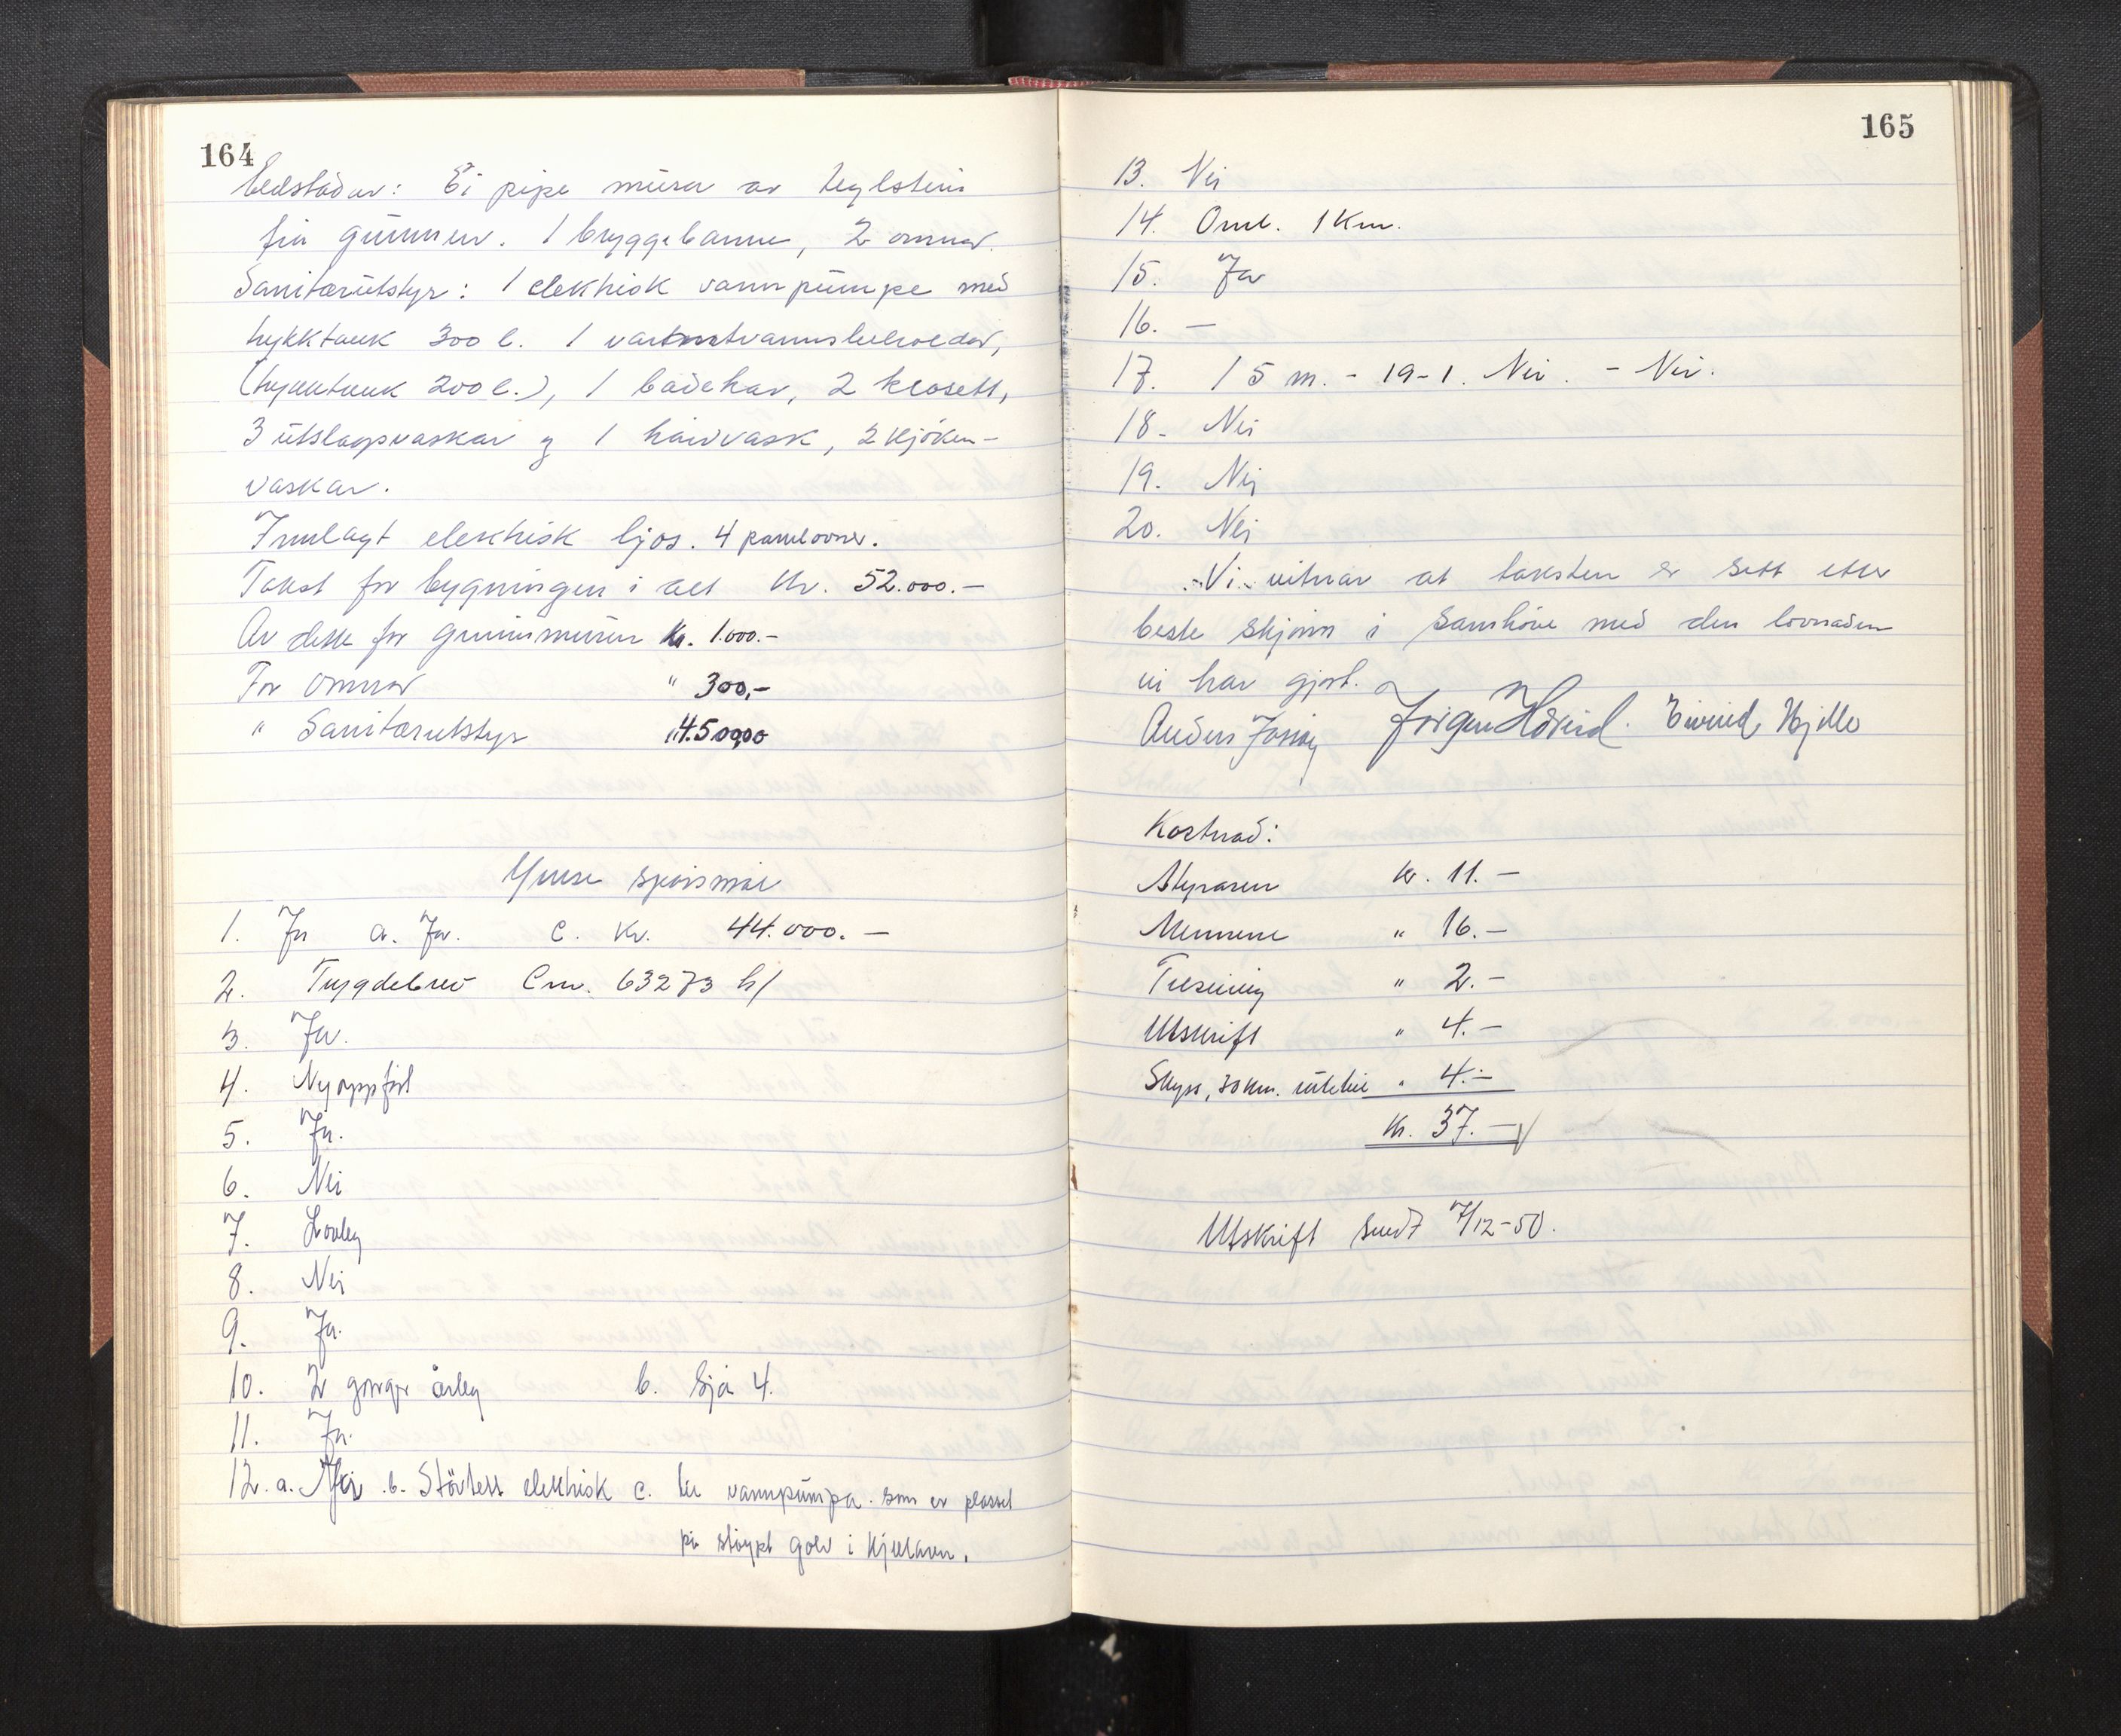 164
Eldstadar: Ei pipe mura av teglstein
frå grunnen. 1 bryggepanne, 2 omnar.
Sanitærutstyr: 1 elektrisk vannpumpe med
trykktank 300 l. 1 varmtvannsbeholdar,
(trykktank 200 l.), 1 badekar, 2 klosett,
3 utslagsvaskar og 1 håndvask, 2 kjöken-
vaskar.
Innlagt elektrisk ljos. 4 panelovner.
Takst for bygningen i alt Kr. 52.000.-
Av dette for grunnmuren Kr. 1.000.-
For omnar " 300,-
" Sanitærutstyr " 4.500,00
Ymse spörsmål
1. Ja a. Ja. c. Kr. 44.000.-
2. Trygdebrev Cnr. 63273 b/
3. Ja.
4. Ny oppfört
5. Ja.
6. Nei
7. Lovleg
8. Nei
9. Ja.
10. 2 gonger årleg b. Sjå 4.
11. Ja.
12. a. Nei b. Stövtett elektrisk c. til vannpumpa som er plassert
på stöypt golv i kjellaren.
165
13. Nei
14. Oml. 1 Km.
15. Ja
16. —
17. 15 m. - 19-1. Nei. - Nei.
18. Nei
19. Nei
20. Nei
Vi vitnar at taksten er sett etter
beste skjönn i samhöve med den lovnaden
vi har gjort.
Anders Jörgen Eivind Hjelle
Kostnad:
Styraren kr. 11.-
Mennene " 16.-
Tilsining " 2.-
Utskrift " 4.-
Skyss, 30 km. " 4.-
Kr. 37.-
Utskrift sendt 7/12-50.